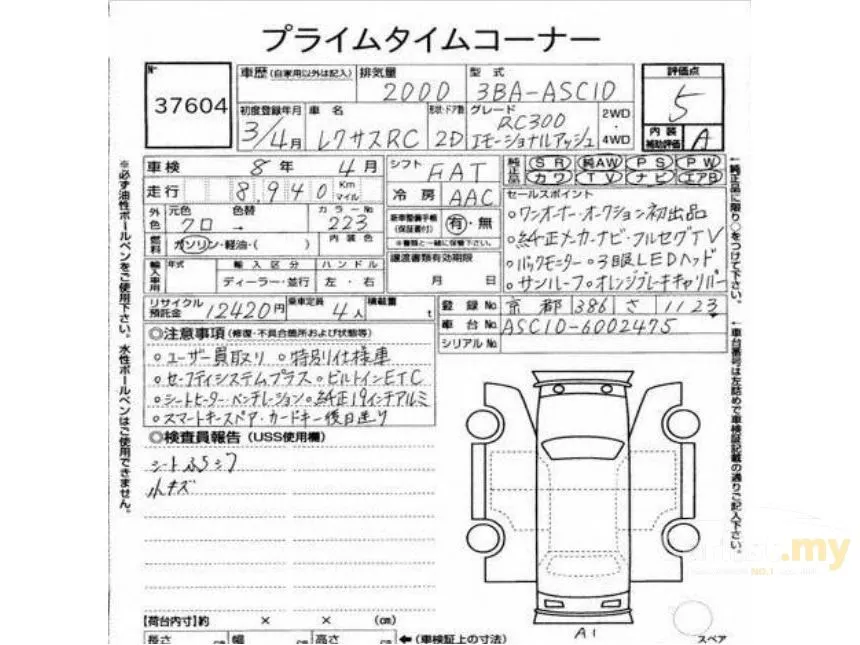 プライムタイムコーナー
№ 37604
車歴 (自家用以外は記入) 排気量 2000 型式 3BA-ASC10
評価点 5
初度登録年月 3/4月 車名 レクサスRC 形状・ドア数 2D グレード RC300 エモーショナルアッシュ 2WD・4WD
内装補助評価 A
車検 8年 4月 シフト FAT 純正品 SR 純AW PS PW
カワ TV ナビ エアB
走行 8,940 Km マイル 冷房 AAC セールスポイント
外色 元色 クロ 色替 → カラーNo 223 新車整備手帳 (保証書付) 有・無
※書類と一緒に保管下さい。
○ワンオーナー・オークション初出品
燃料 ガソリン・軽油・( ) 内装色
○純正メーカーナビ・フルセグTV
輸入車用 年式 輸入区分 ハンドル 譲渡書類有効期限
○バックモニター○3眼LEDヘッド
ディーラー・並行 左・右 月 日
○サンルーフ○オレンジブレーキキャリパー
リサイクル預託金 12420円 乗車定員 4人 積載量 t
登録No. 京都 386 さ 1123
車台No. ASC10-6002475
シリアルNo.
◎注意事項 (修復・不具合箇所および状態等)
○ユーザー買取り ○特別仕様車
○セーフティシステムプラス○ビルトインETC
○シートヒーター・ベンチレーション○純正19インチアルミ
○スマートキースペア・カードキー後日送り
◎検査員報告 (USS使用欄)
シート
小キズ
※必ず油性ボールペンをご使用下さい。水性ボールペンはご使用できません。
←純正品に限り○をつけて下さい。
←車台番号は左詰めで車検証記載の通りご記入下さい。
A1
スペア
【荷台内寸】約 × × (cm)
長さ cm 幅 cm 高さ cm ←(車検証上の寸法)
.my
NO.1